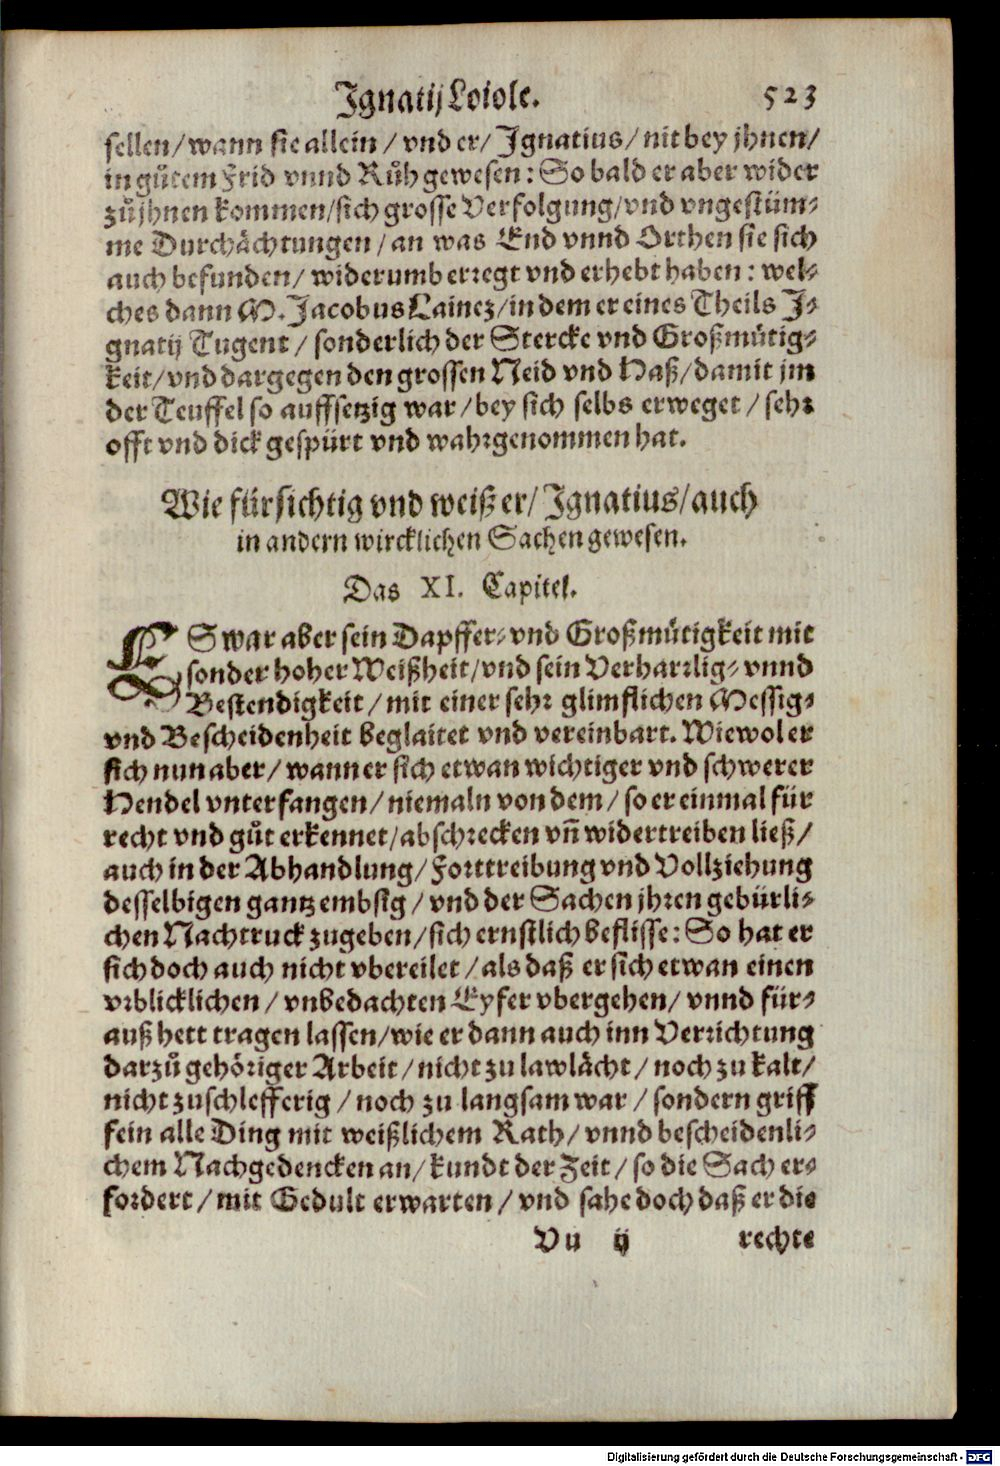 Ignatij Loiole. 523
sellen/ wann sie allein/ vnd er/ Ignatius/ nit bey jhnen/
in gůtem Frid vnnd Růh gewesen: So bald er aber wider
zů jhnen kommen/ sich grosse Verfolgung/ vnd vngestüm-
me Durchächtungen/ an was End vnnd Orthen sie sich
auch befunden/ widerumb erregt vnd erhebt haben: wel-
ches dann M. Jacobus Lainez/ in dem er eines Theils I-
gnatij Tugent/ sonderlich der Stercke vnd Großmütig-
keit/ vnd dargegen den grossen Neid vnd Haß/ damit jm
der Teuffel so auffsetzig war/ bey sich selbs erweget/ sehr
offt vnd dick gespürt vnd wahrgenommen hat.
Wie fürsichtig vnd weiß er/ Ignatius/ auch
in andern wircklichen Sachen gewesen.
Das XI. Capitel.
ES war aber sein Dapffer- vnd Großmütigkeit mit
sonder hoher Weißheit/ vnd sein Verharrlig- vnnd
Bestendigkeit/ mit einer sehr glimflichen Messig-
vnd Bescheidenheit beglaitet vnd vereinbart. Wiewol er
sich nun aber/ wann er sich etwan wichtiger vnd schwerer
Hendel vnterfangen/ niemaln von dem/ so er einmal für
recht vnd gůt erkennet/ abschrecken vñ widertreiben ließ/
auch in der Abhandlung/ Forttreibung vnd Vollziehung
desselbigen gantz embsig/ vnd der Sachen jhren gebürli-
chen Nachtruck zugeben/ sich ernstlich beflisse: So hat er
sich doch auch nicht vbereilet/ als daß er sich etwan einen
vrblicklichen/ vnbedachten Eyfer vbergehen/ vnnd für-
auß hett tragen lassen/ wie er dann auch inn Verrichtung
darzů gehöriger Arbeit/ nicht zu lawlächt/ noch zu kalt/
nicht zu schlefferig/ noch zu langsam war/ sondern griff
fein alle Ding mit weißlichem Rath/ vnnd bescheidenli-
chem Nachgedencken an/ kundt der Zeit/ so die Sach er-
fordert/ mit Gedult erwarten/ vnd sahe doch daß er die
Vu ij rechte
Digitalisierung gefördert durch die Deutsche Forschungsgemeinschaft - DFG